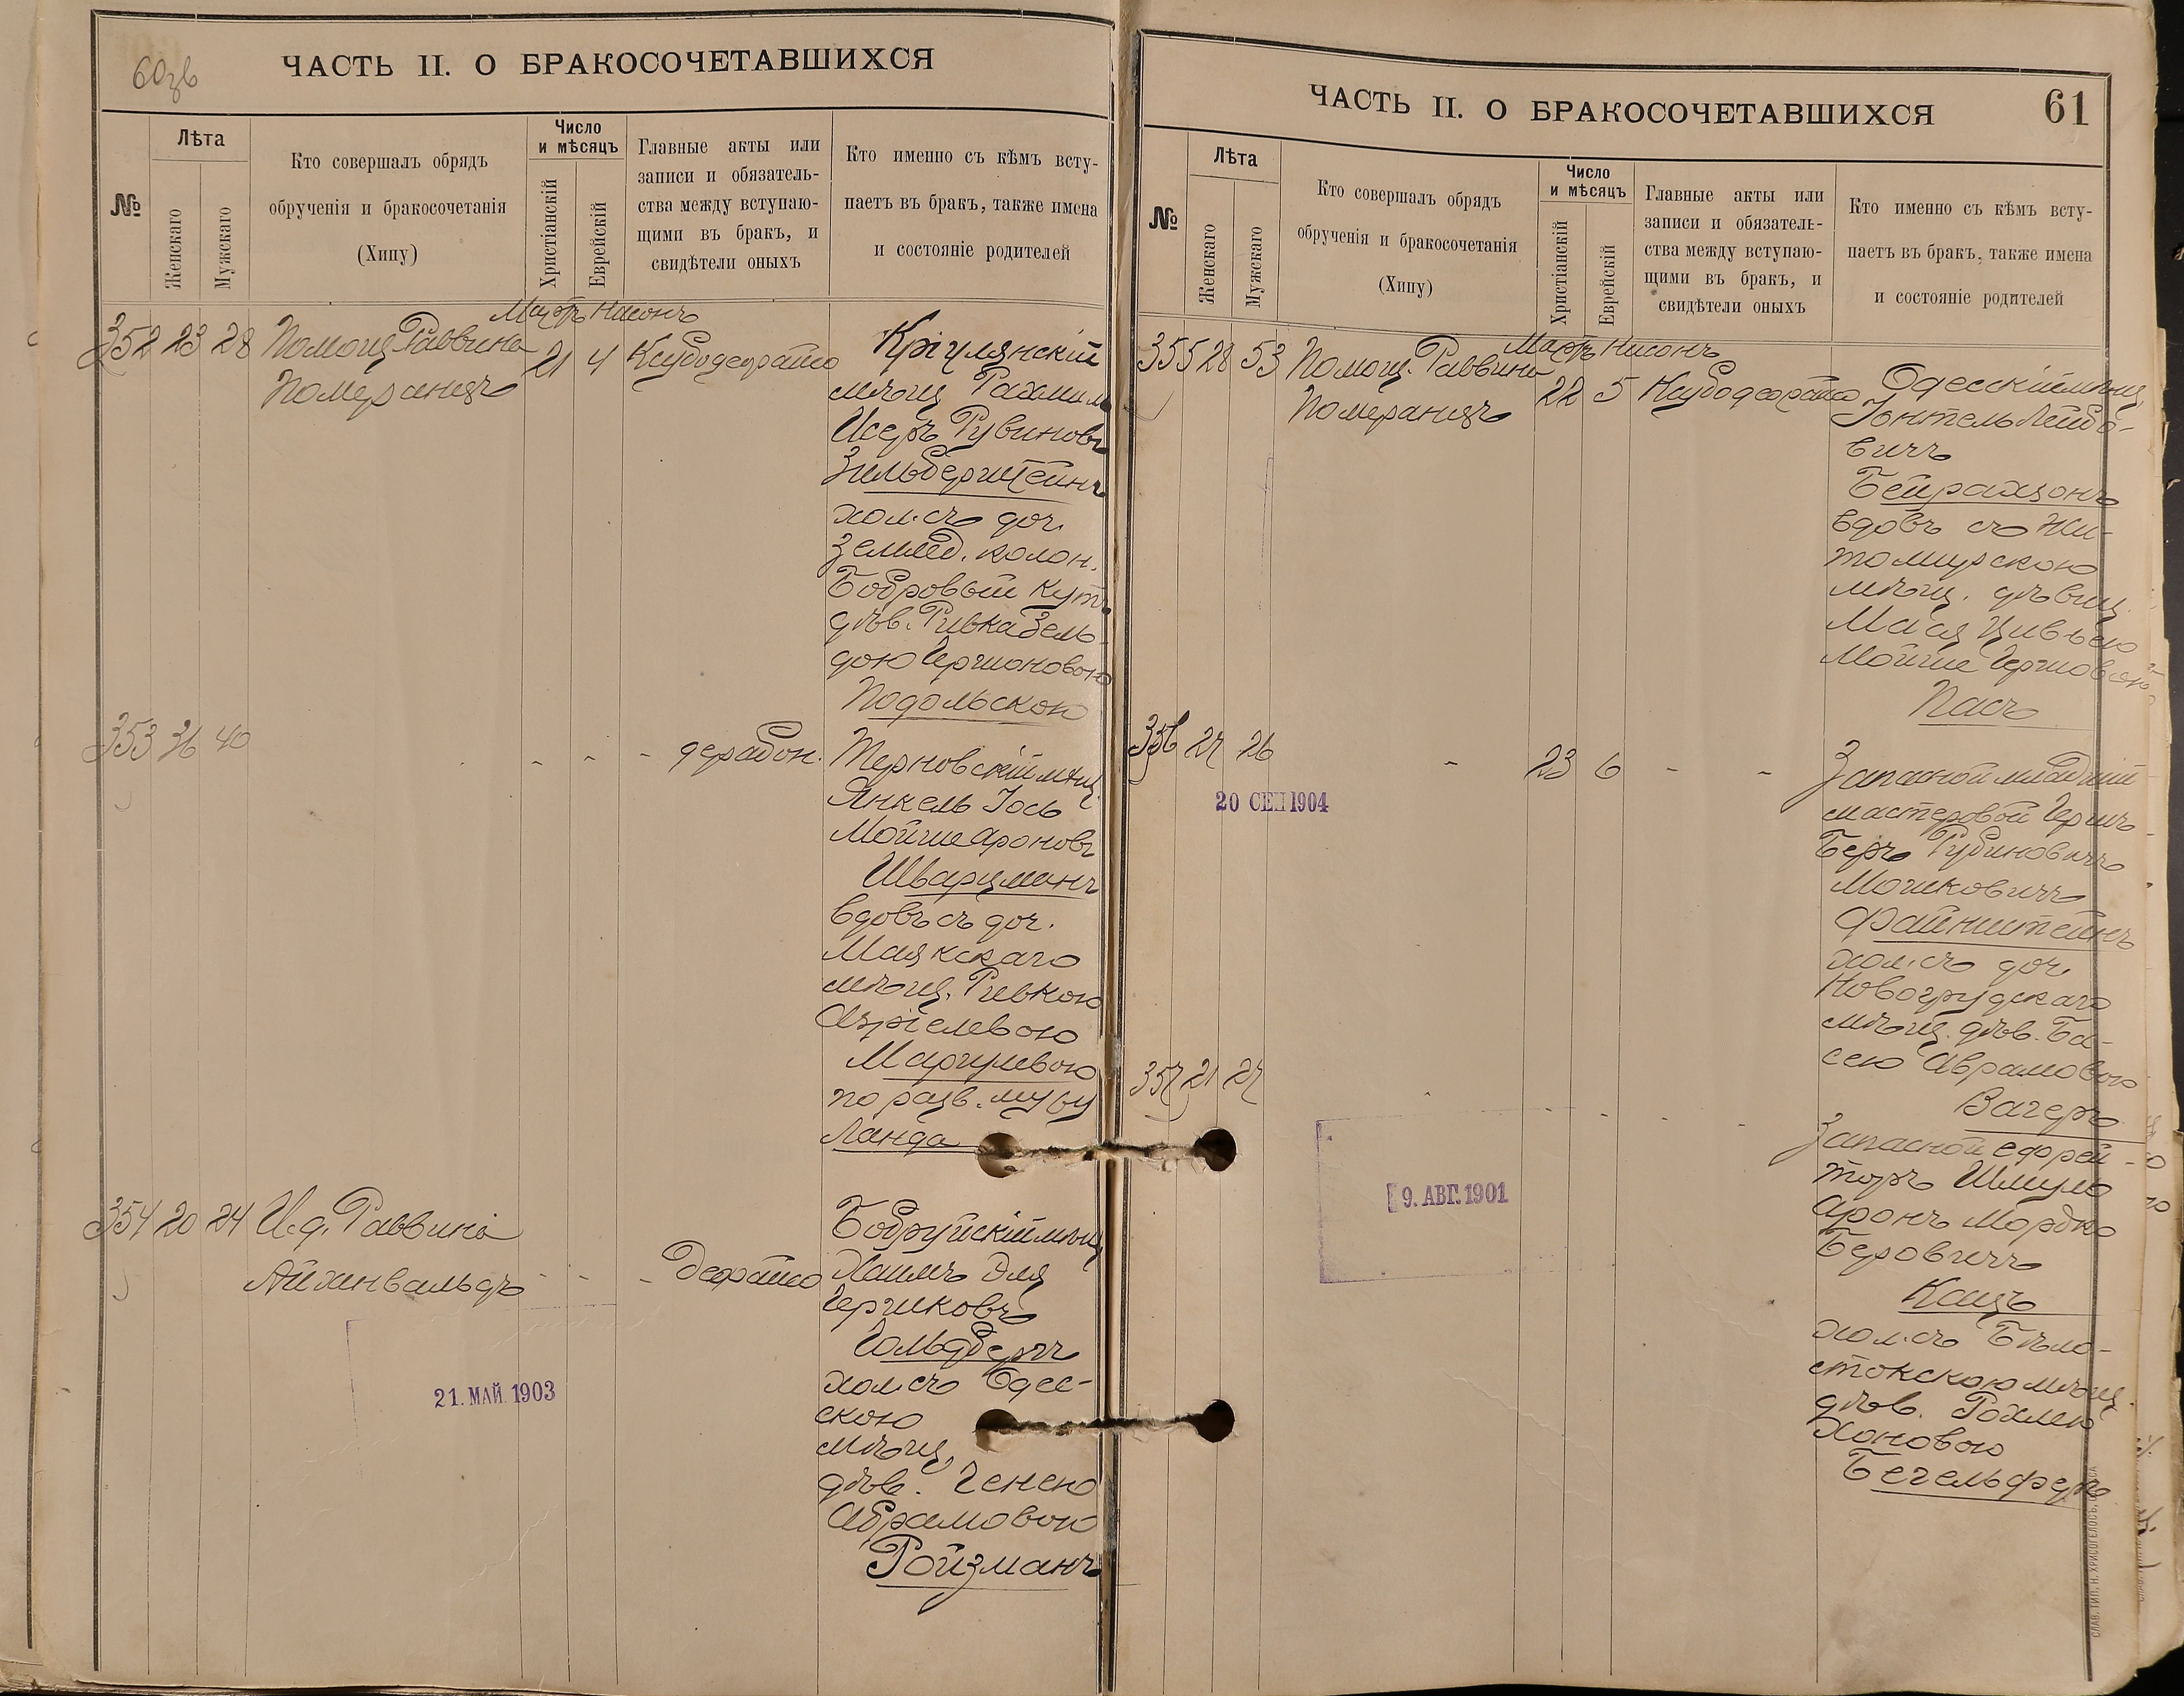 60зв
ЧАСТЬ II. О БРАКОСОЧЕТАВШИХСЯ
№
Лѣта
Женскаго
Мужскаго
Кто совершалъ обрядъ
обрученія и бракосочетанія
(Хипу)
Число
и мѣсяцъ
Христіанскій
Еврейскій
Главные акты или
записи и обязатель-
ства между вступаю-
щими въ бракъ, и
свидѣтели оныхъ
Кто именно съ кѣмъ всту-
паетъ въ бракъ, также имена
и состояніе родителей
Мартъ Нисонъ
352 23 28 Помощ. Раввина 21 4
Померанцъ
Кріулянскій
мѣщ. Рахмиль
Исеръ Рувиновъ
Зильберштейнъ
хол. съ доч.
землед. колон.
Бобровый Кутъ
дѣв. Ривка Зель-
дою Гершоновою
Подольскою
353 36 40 - - - дерабон.
Терновскій мѣщ.
Янкель Іось
Мойше Ароновъ
Шварцманъ
вдовъ съ доч.
Маякскаго
мѣщ. Ривкою
Азріелевою
по разв. мужу
Ланда
354 20 24 И. д. Раввина
Айхенвальдъ - - -
Бобруйскій мѣщ.
Хаимъ Эля
Гершковъ
Гольдбергъ
хол. съ Одес-
скою
мѣщ.
дѣв. Генею
Абрамовою
Ройзманъ
21. МАЙ. 1903
ЧАСТЬ II. О БРАКОСОЧЕТАВШИХСЯ
61
№
Лѣта
Женскаго
Мужскаго
Кто совершалъ обрядъ
обрученія и бракосочетанія
(Хипу)
Число
и мѣсяцъ
Христіанскій
Еврейскій
Главные акты или
записи и обязатель-
ства между вступаю-
щими въ бракъ, и
свидѣтели оныхъ
Кто именно съ кѣмъ всту-
паетъ въ бракъ, также имена
и состояніе родителей
Мартъ Нисонъ
355 28 53 Помощ. Раввина 22 5
Померанцъ
Одесскій мѣщ.
Іонтель Лейбо-
вичъ
Бейрахцонъ
вдовъ съ Жи-
томирскою
мѣщ. дѣвиц.
Мася Цивьею
Мойше Гершовою
Пасъ
356 27 26 - 23 6 - -
20 СЕП 1904
Запасной младшій
мастеровой Гершъ
Беръ Рубиновичъ
Мошковичъ
Файнштейнъ
хол. съ доч.
Новогрудскаго
мѣщ. дѣв. Ба-
сею Аврамовою
Вагеръ
357 21 27 - - - - -
9. АВГ. 1901
Запасной ефрей-
торъ Шмуль
Аронъ Мордко
Беровичъ
Кацъ
хол. съ Бѣло-
стокскою мѣщ.
дѣв. Рохлею
Хоновою
Бегельферъ